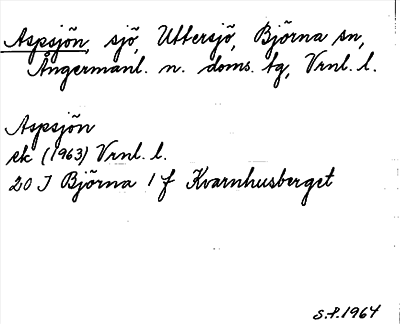 Aspsjön, sjö, Uttersjö, Björna sn,
Ångermanl. n. doms. tg, Vrnl. l.
Aspsjön
ek (1963) Vrnl. l.
20 J Björna 1 f Kvarnhusberget
S.P. 1964